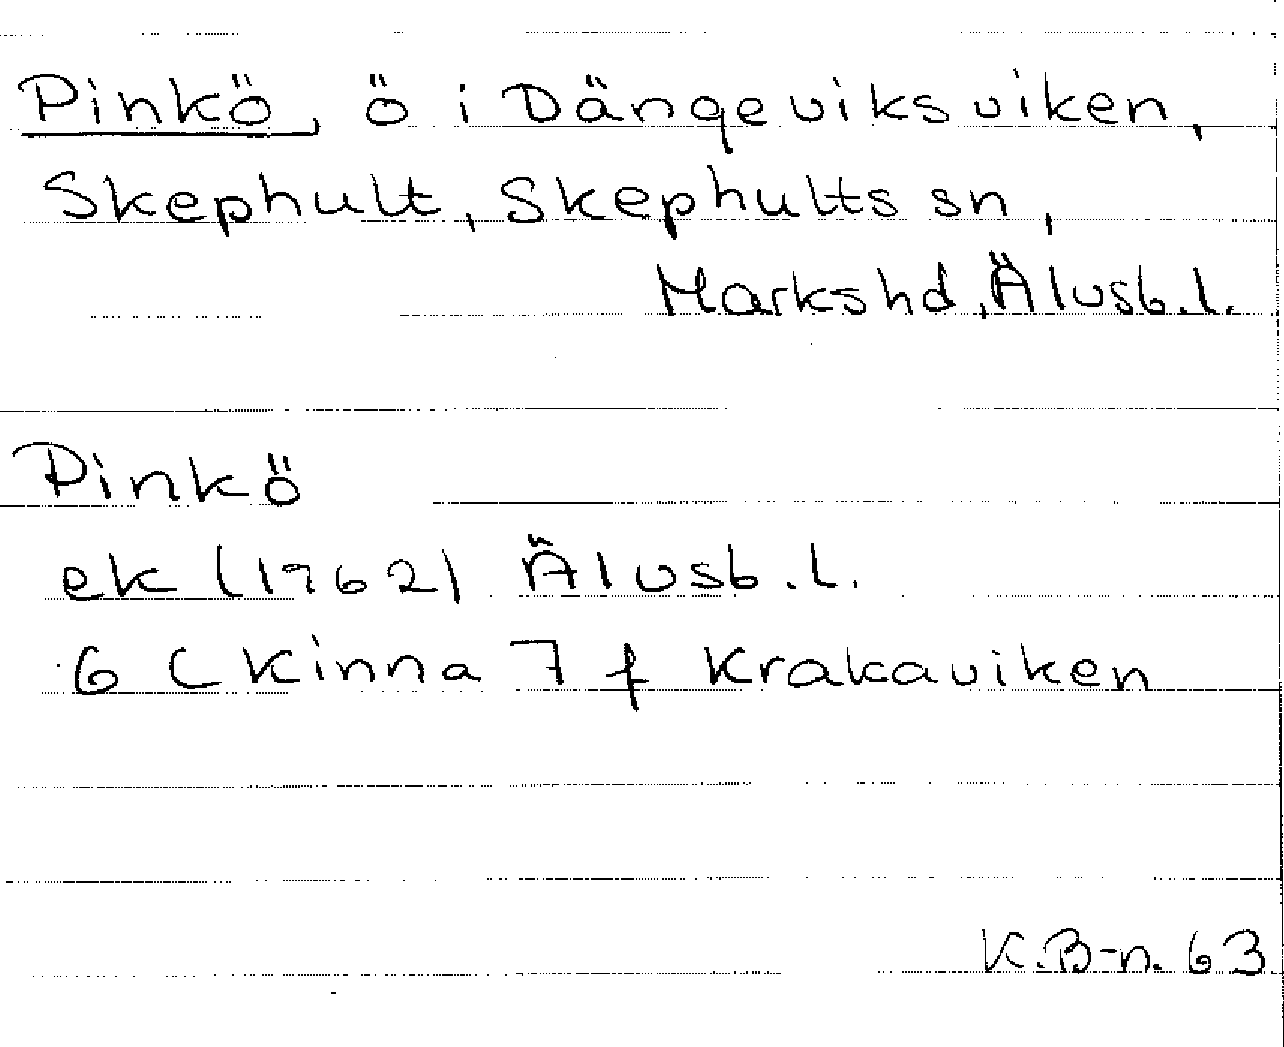 Pinkö, ö i Dängeviksviken,
Skephult, Skephults sn,
Markshd, Älvsb.l.
Pinkö
ek (1962) Älvsb.l.
6 C Kinna 7 f Krakaviken
K.B-n. 63